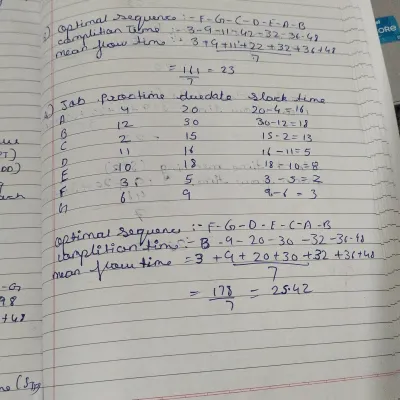 optimal sequence :- F-G-C-D-E-A-B
complition Time :- 3-9-11-42-32-36-48
mean flow time :- 3+9+11+22+32+36+48
7
= 161 = 23
7
Job Proctime duedate Slack time
A 4 20 20-4=16
B 12 30 30-12=18
C 2 15 15-2=13
D 11 16 16-11=5
E 10 18 18-10=8
F 3 5 3-5=2
G 6 9 9-6=3
optimal sequence :- F-G-D-E-C-A-B
complition time :- 3-9-20-30-32-36-48
mean flow time = 3+9+20+30+32+36+48
7
= 178 = 25.42
7